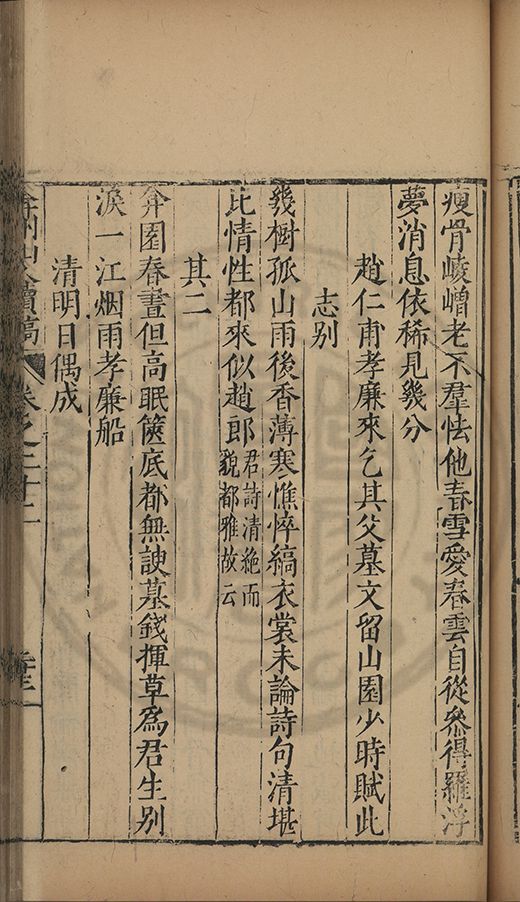 瘦骨崚嶒老不羣怯他春雪愛春雲自從參得羅浮
夢消息依稀見幾分
趙仁甫孝廉來乞其父墓文留山園少時賦此
志别
幾樹孤山雨後香薄寒憔悴縞衣裳未論詩句清堪
比情性都來似趙郎君詩清絶而
貌都雅故云
其二
弇園春晝但高眠篋底都無諛墓錢揮草爲君生别
淚一江烟雨孝廉船
清明日偶成
弇州山人續稿 卷之二十二